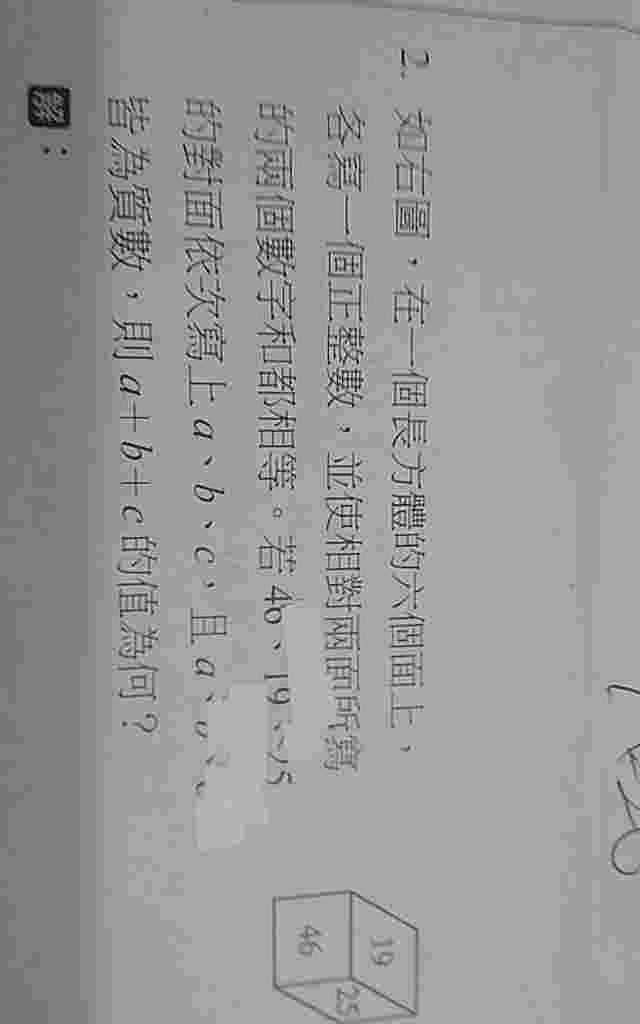 2. 如右圖，在一個長方體的六個面上，
各寫一個正整數，並使相對兩面所寫
的兩個數字和都相等。若46、19、25
的對面依次寫上a、b、c，且a、
皆為質數，則a+b+c的值為何？
解：
19
46
25